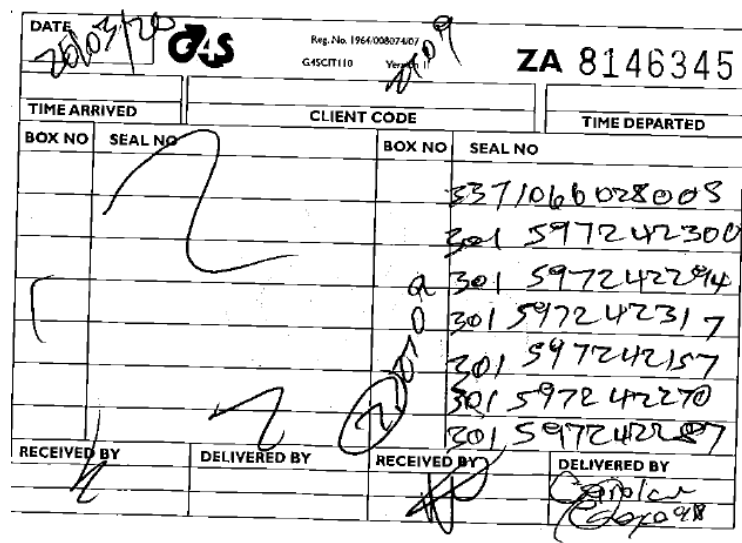 DATE 20/03/20 G4S Reg. No. 1964/008074/07 ZA 8146345
G4SCIT110 Version 11
TIME ARRIVED CLIENT CODE TIME DEPARTED
BOX NO SEAL NO BOX NO SEAL NO
3371066028005
301 5972 42300
301 5972 42294
301 5972 42317
301 5972 42157
301 5972 42270
301 5972 42287
RECEIVED BY DELIVERED BY RECEIVED BY DELIVERED BY